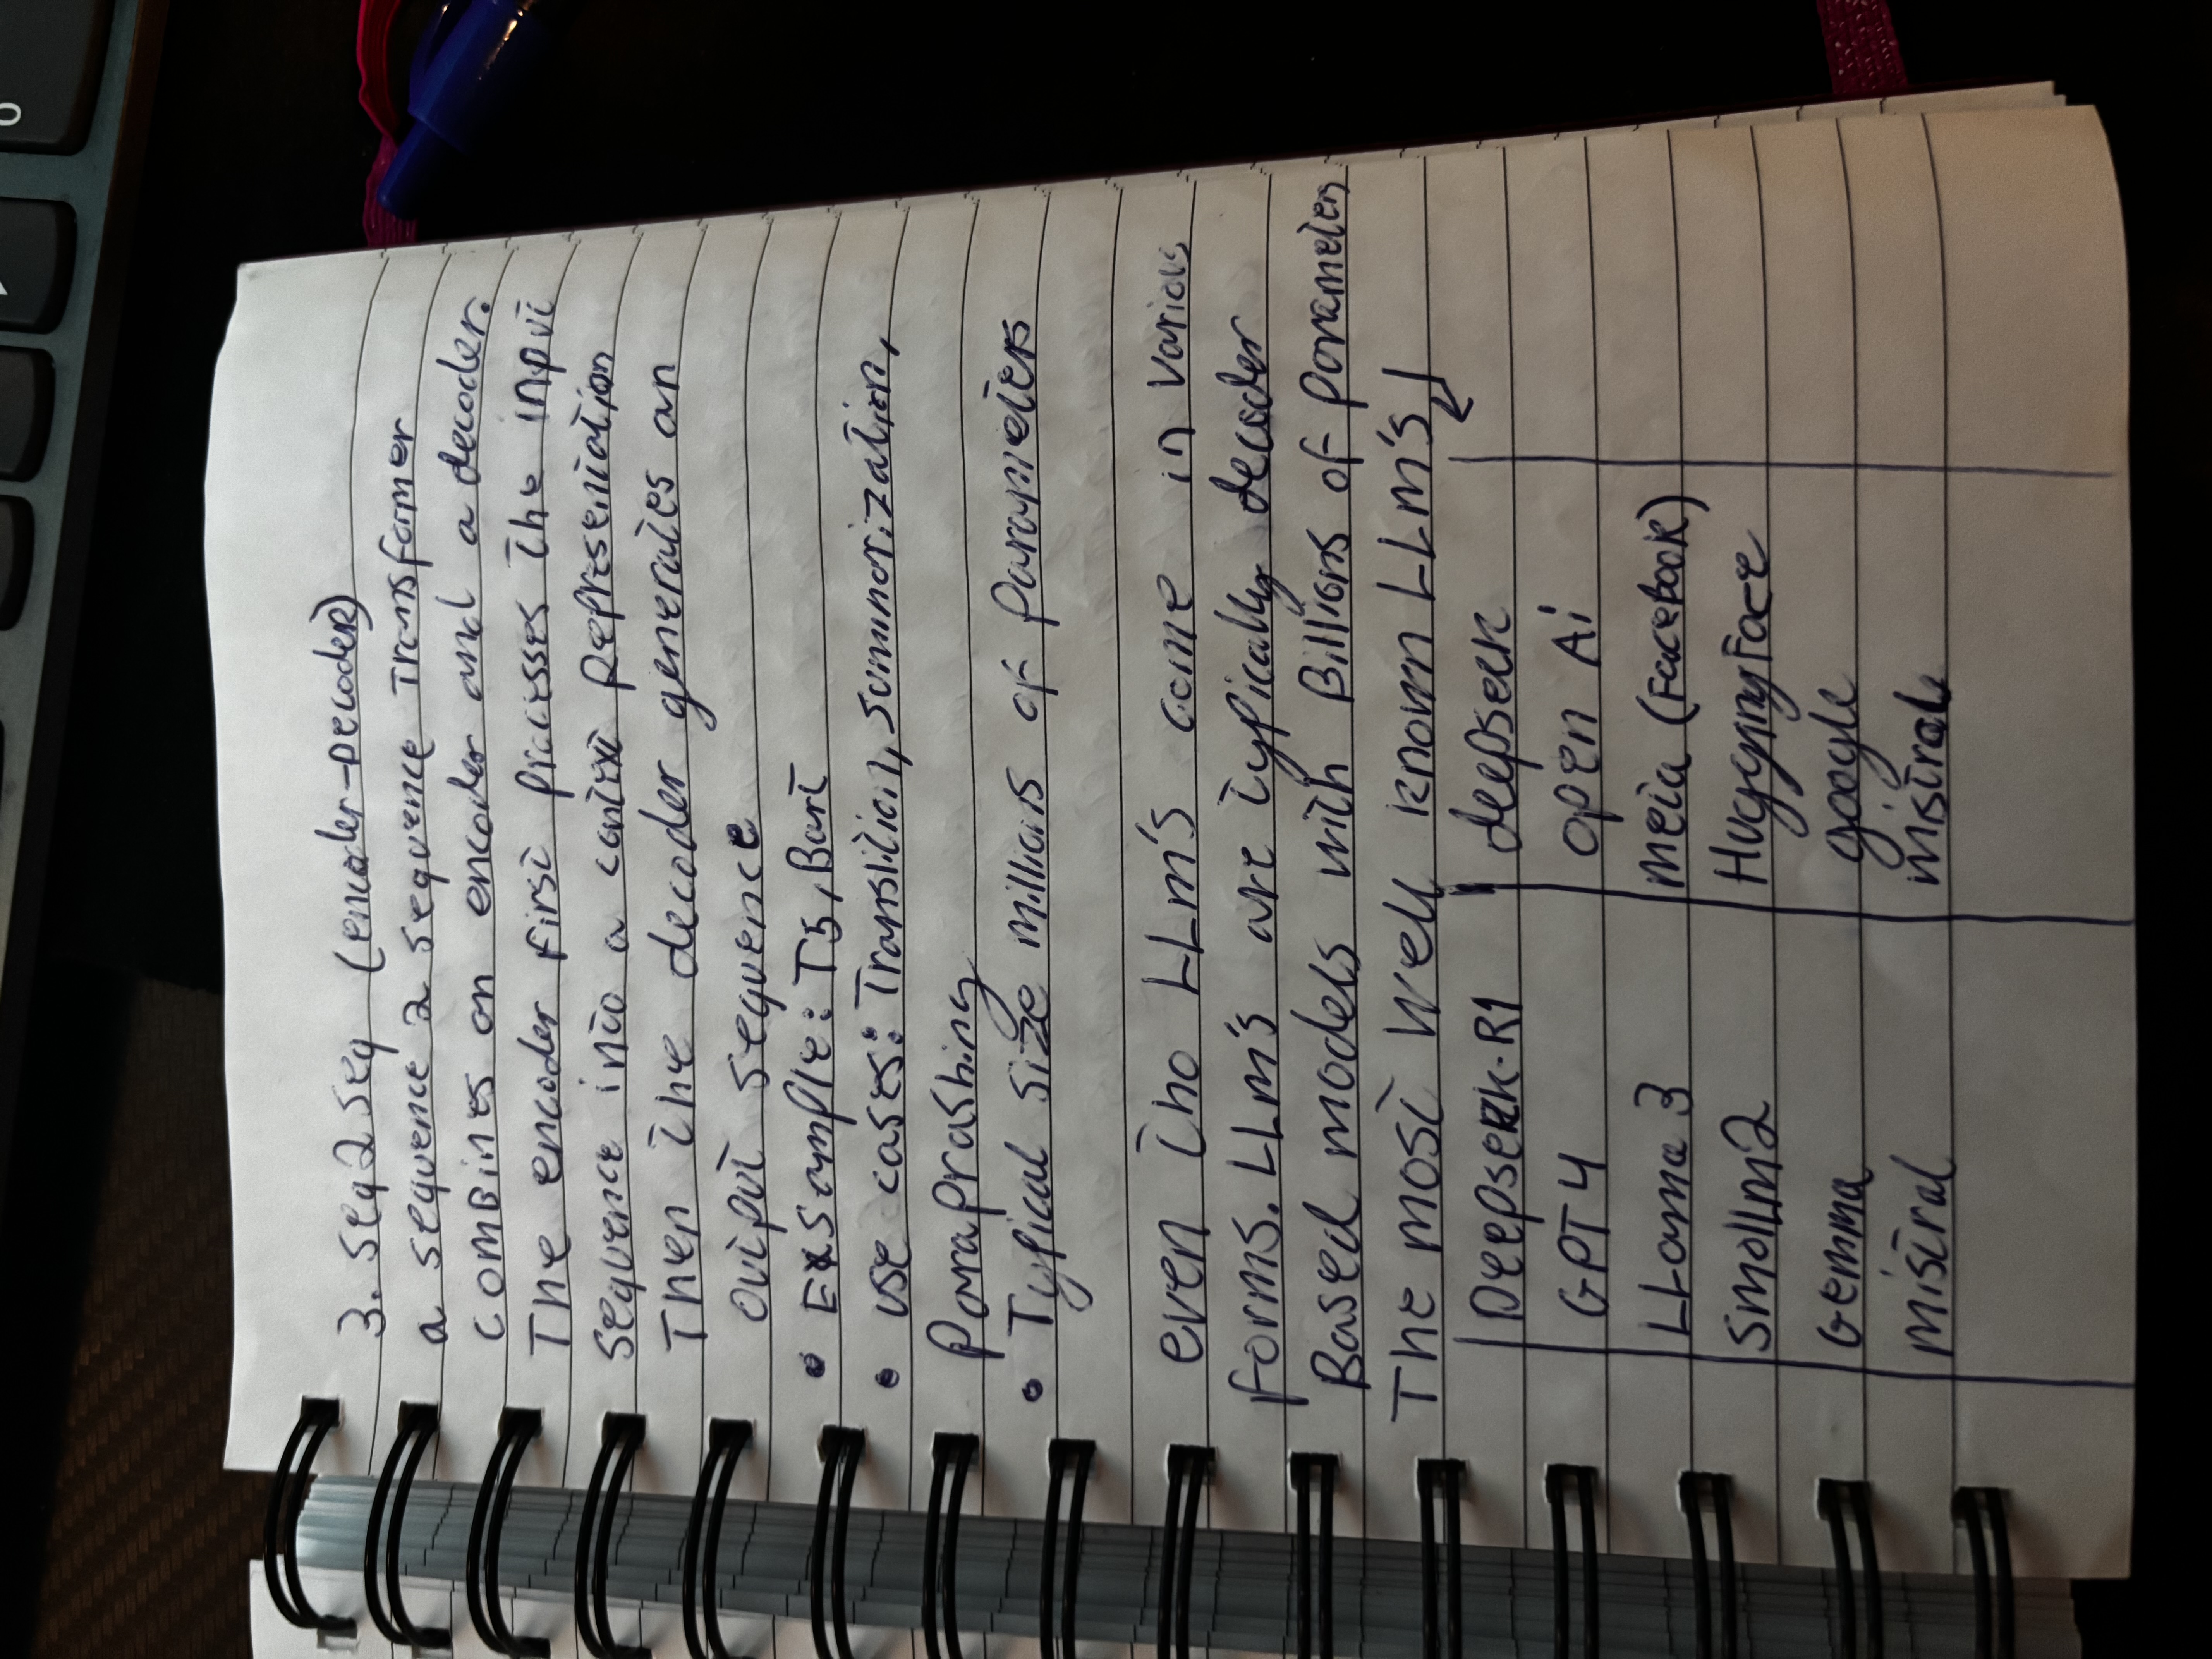 3. Seq2Seq (encoder-Decoder)
a sequence 2 sequence Transformer
combines an encoder and a decoder.
The encoder first processes the input
sequence into a context Representation
Then the decoder generates an
output sequence
• Exsample: T5, Bart
• use cases: Translition, summorization,
Paraprashing
• Typical size millions of parameters
even tho LLm's come in various
forms. LLm's are typically decoder
Based models with Billions of parameters
The most well known LLm's ↙
Deepseek-R1 deepseek
GPT4 open Ai
LLama 3 meta (FaceBook)
Smollm2 HuggingFace
Gemma google
mistral mistral